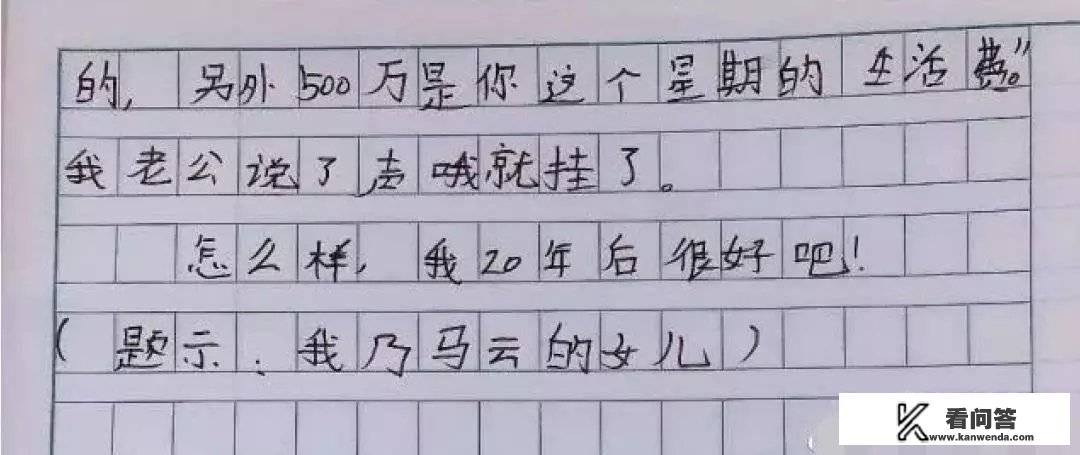 的，另外500万是你这个星期的生活费。”
我老公说了声哦就挂了。
怎么样，我20年后很好吧！
（题示：我乃马云的女儿）
看问答
www.kanwenda.com